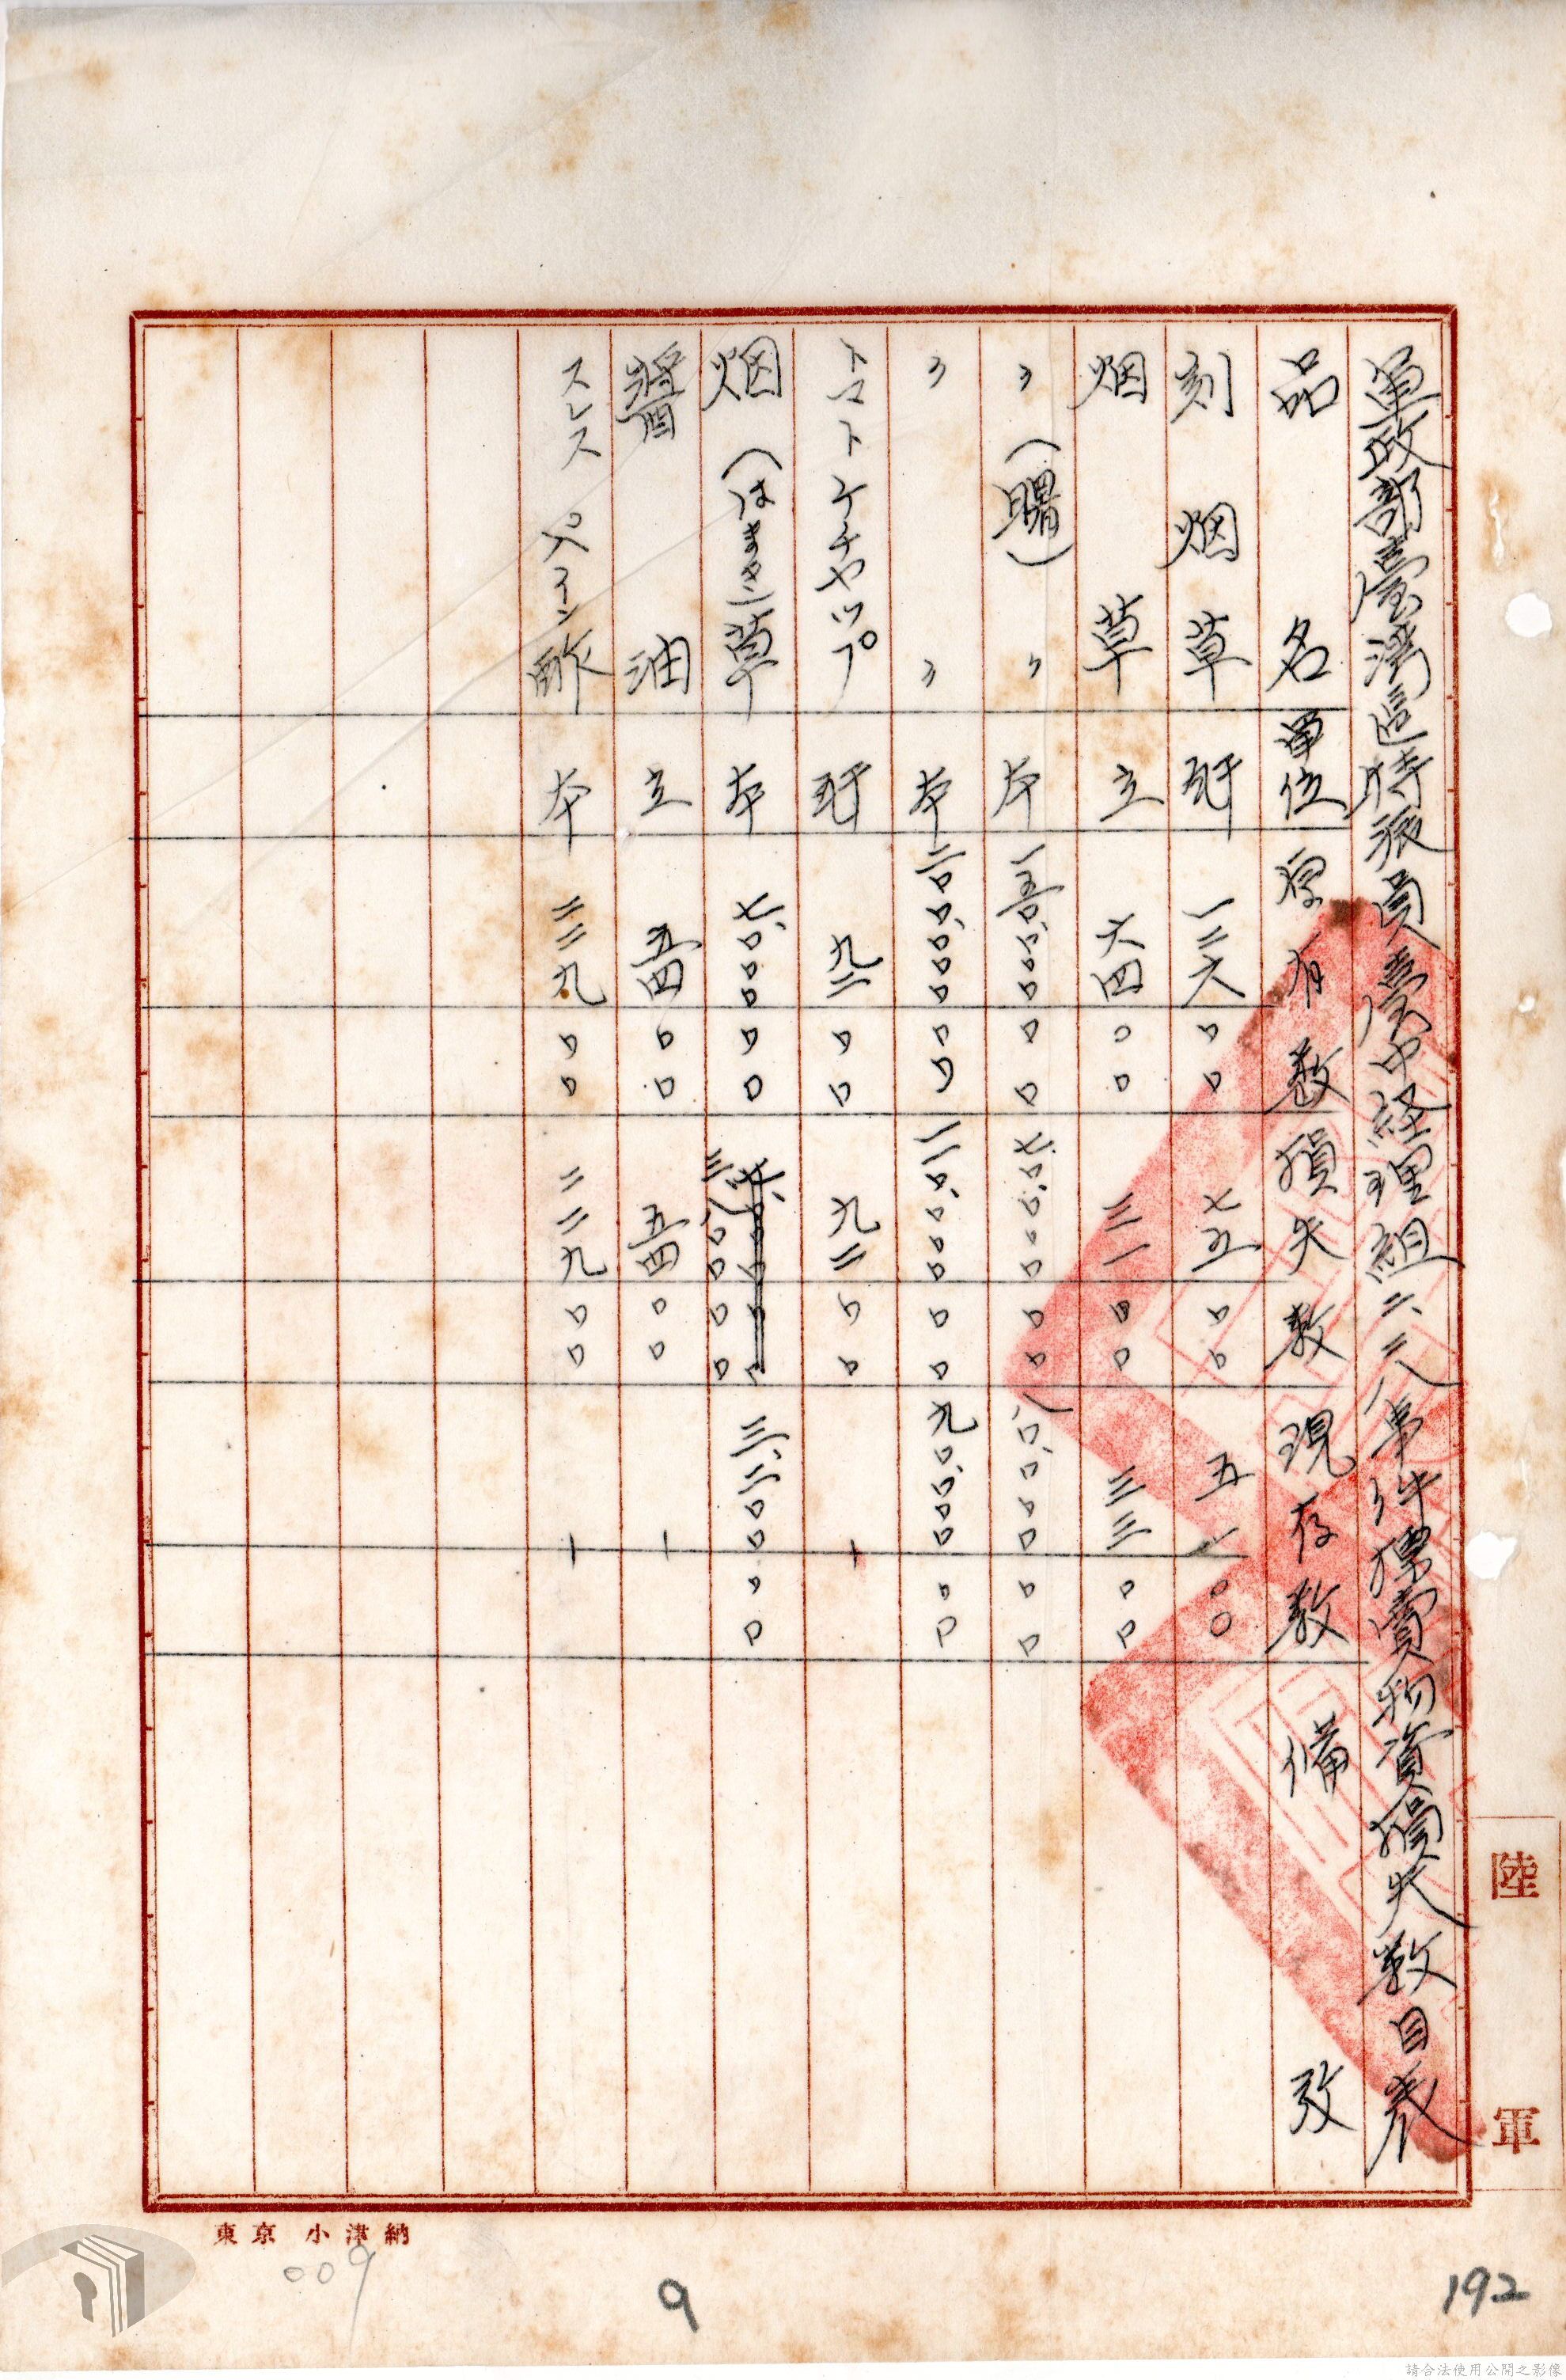 軍政部臺灣區特派員臺中経理組二、二八事件標賣物資損失数目表
品名 單位 原有数 損失数 現存数 備攷
刻烟草 瓩 一二六〇〇 七五〇〇 五一〇〇
烟草 立 六四〇〇 三一〇〇 三三〇〇
〃(曙)〃 本 一五〇、〇〇〇〇〇 七〇、〇〇〇〇〇 八〇、〇〇〇〇〇
〃〃 本 二〇〇、〇〇〇〇〇 一一〇、〇〇〇〇〇 九〇、〇〇〇〇〇
トマトケチヤップ 瓩 九二〇〇 九二〇〇 -
烟(はまき)草 本 七〇、〇〇〇〇 三八〇〇〇〇 三、二〇〇〇〇
醬油 立 五四〇〇 五四〇〇 -
スレス パイン酢 本 二二九〇〇 二二九〇〇 -
陸軍
東京 小津納
009
9
192
請合法使用公開之影像